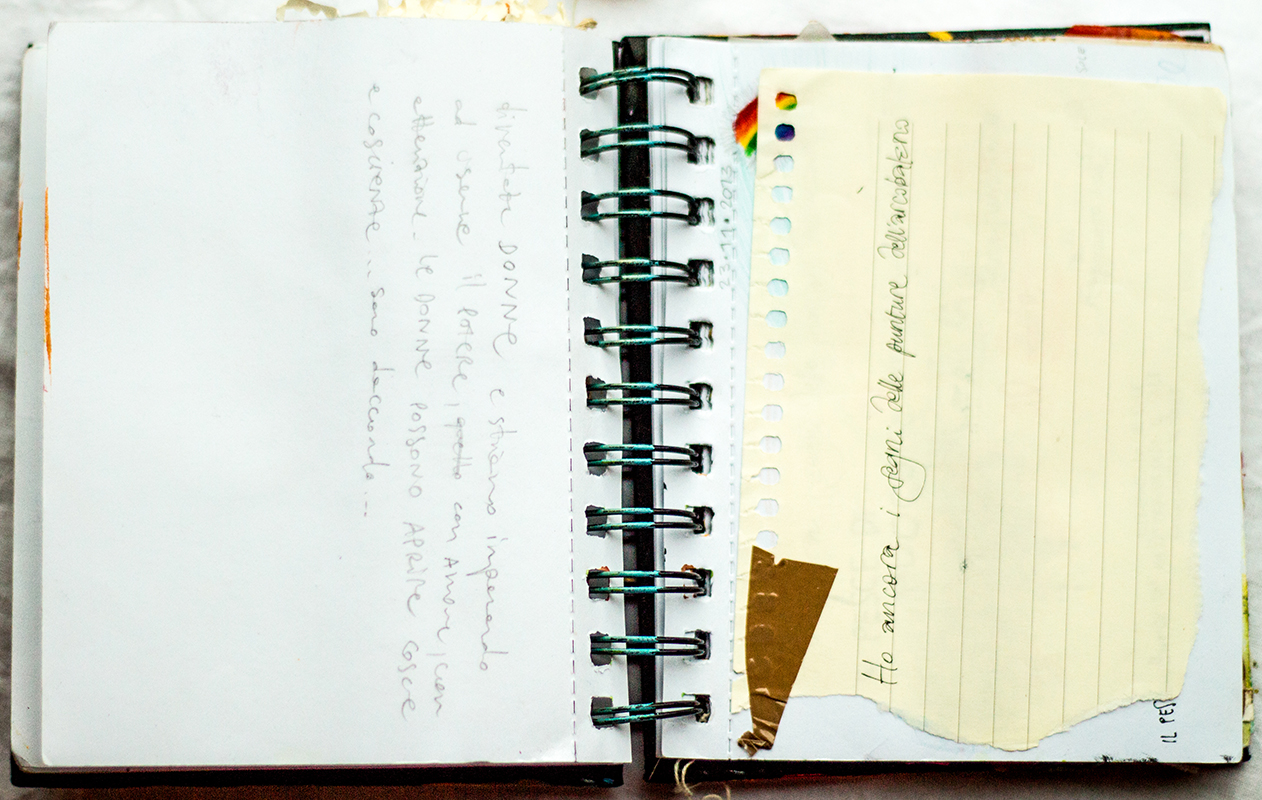 diventate DONNE e stiamo imparando
ad usarne il potere, quello con Amore, con
attenzione. le DONNE POSSONO APRIRE COSCE
e COSCIENZE... sono d'accordo...
23.11.2013
Ho ancora i segni delle punture dell'arcobaleno
IL PES